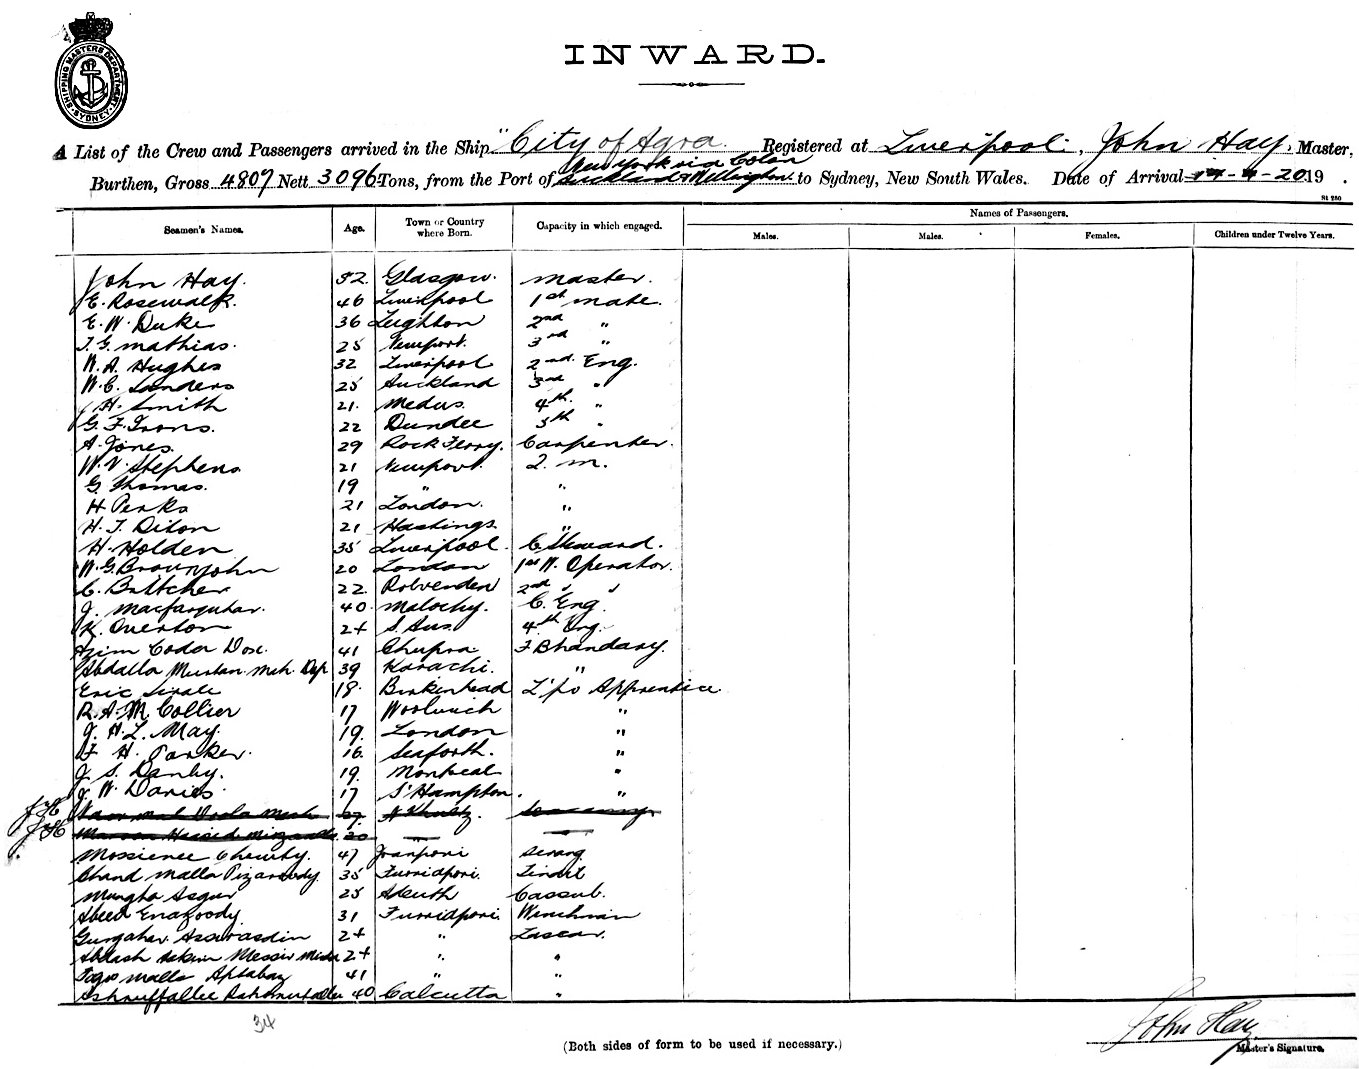 SHIPPING MASTERS DEPARTMENT. SYDNEY
INWARD.
A List of the Crew and Passengers arrived in the Ship "City of Agra Registered at Liverpool, John Hay, Master,
New York via Colon
Burthen, Gross 4807 Nett 3096 Tons, from the Port of Auckland & Wellington to Sydney, New South Wales. Date of Arrival 4-20 19 .
St 280
Seamen's Names. Age. Town or Country where Born. Capacity in which engaged. Names of Passengers.
Males. Males. Females. Children under Twelve Years.
John Hay. 52. Glasgow. Master.
E. Rosewalk. 46 Liverpool 1st Mate.
E. W. Duke 36 Leighton 2nd "
T. G. Mathias. 25 Newport. 3rd "
W. A. Hughes 32 Liverpool 2nd. Eng.
W. C. Sanders 25 Auckland 3rd "
H. Smith 21. 4th. "
G. F. Irons. 22 Dundee 5th "
A. Jones. 29 Rock Ferry. Carpenter.
W. V. Stephens 21 Newport. Q. M.
G. Thomas. 19 " "
H Perks 21 London. "
H. T. Diton 21 Hastings. "
H. Holden 35 Liverpool. C. Steward.
W. G. Brownjohn 20 London 1st W. Operator.
C. Buttcher 22. Rolvenden 2nd " "
J. Macfarquhar. 40. C. Eng.
K. Overton 24 S. Aus. 4th Eng.
Coder Dox. 41 Chupra F. Bhandary.
Abdalla Mustan. Mah. Dep 39 Karachi. "
Eric 18. Birkenhead Apprentice
R. A. M. Collier 17 Woolwich "
J. H. L. May. 19. London "
F H. Parker. 16. Seaforth. "
J. S. Danby. 19. Montreal "
J. W. Davies. 17 S'Hampton. "
J H
J H
Mossienee Chewty. 47 Serang
Chand Malla 35 Furridpori. Tindel
Mungha Asgur 25 Cassub.
Abeed 31 Furridpori. Winchman
24 " Lascar.
24 " "
Malla Aftabay 41 " "
40 Calcutta "
34
(Both sides of form to be used if necessary.)
John Hay
Master's Signature.